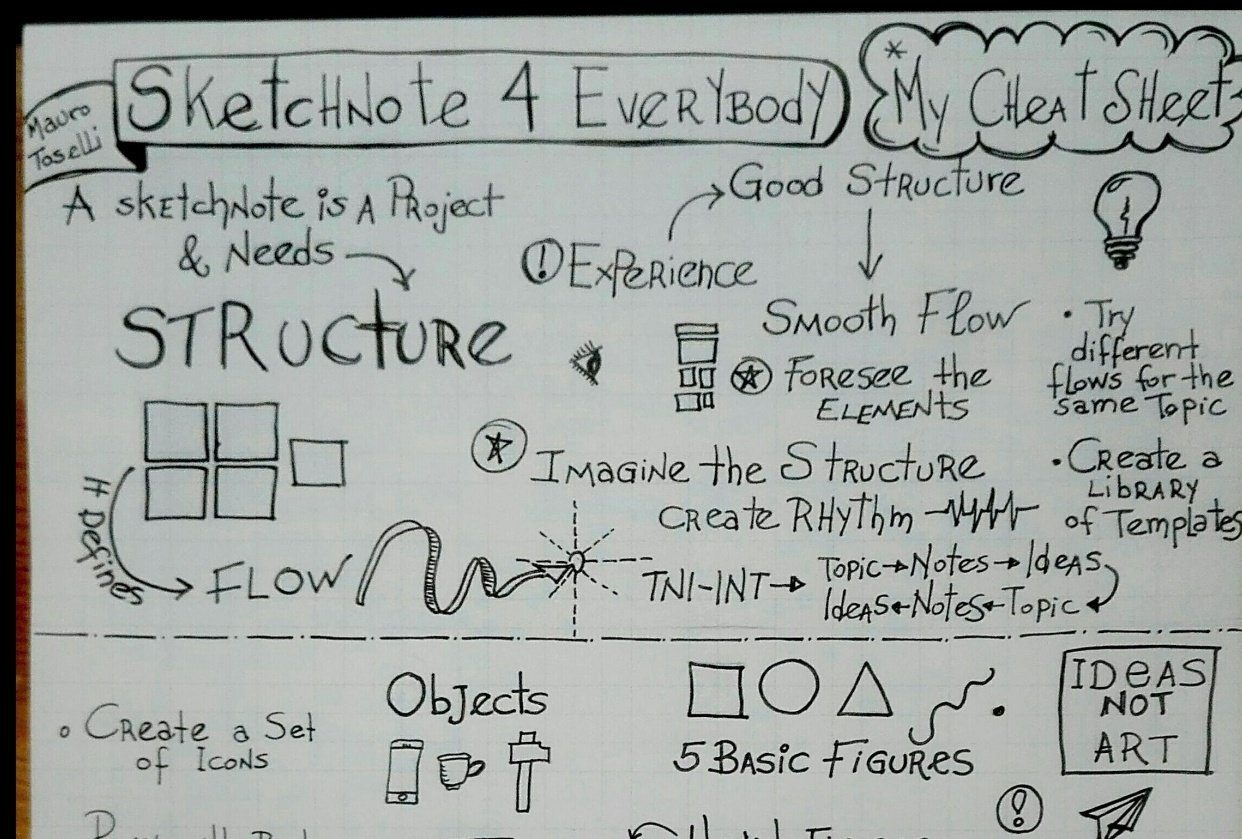 Mauro
Toselli
Sketchnote 4 Everybody
* My Cheat Sheet
A sketchnote is a Project
& Needs
Structure
It Defines
Flow
! Experience
Good Structure
Smooth Flow
Foresee the
Elements
Imagine the Structure
Create Rhythm
TNI-INT→ Topic→Notes→Ideas
Ideas←Notes←Topic
• Try
different
flows for the
same Topic
• Create a
Library
of Templates
Create a Set
of Icons
Objects
5 Basic Figures
IDEAS
NOT
ART
!